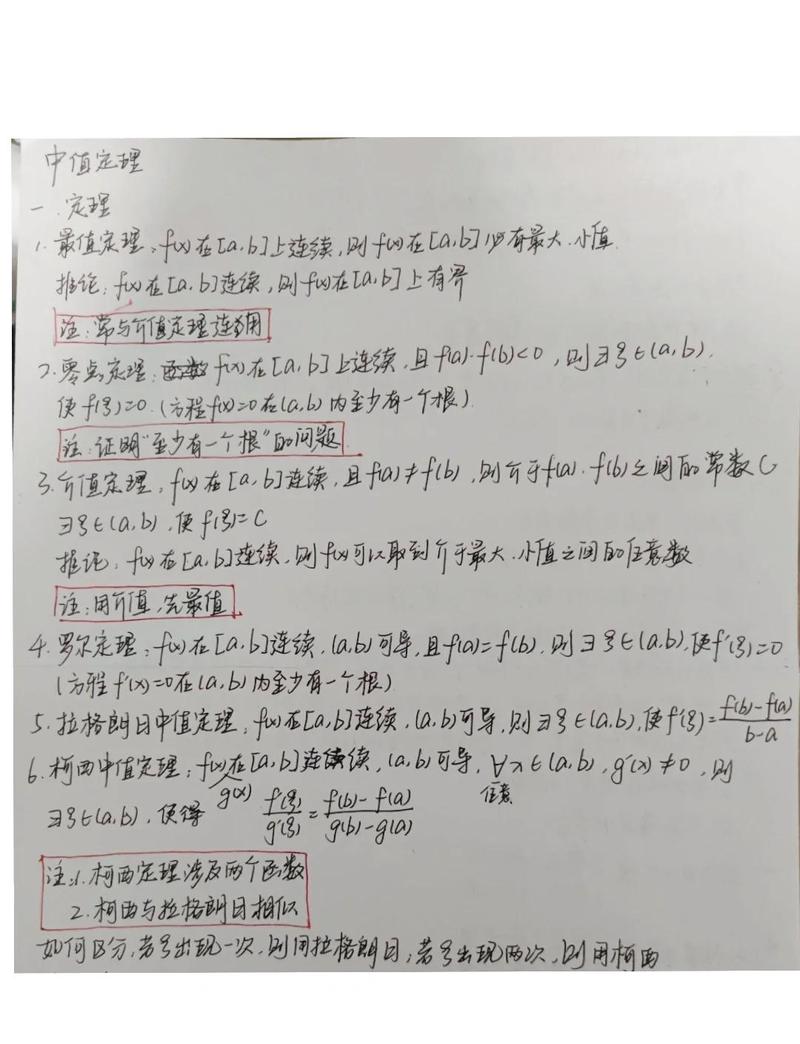 中值定理
一.定理
1.最值定理:f(x)在[a,b]上连续,则f(x)在[a,b]必有最大.小值.
推论:f(x)在[a,b]连续,则f(x)在[a,b]上有界
注:常与介值定理连用
2.零点定理:函数f(x)在[a,b]上连续,且f(a)·f(b)<0,则∃ξ∈(a,b).
使f(ξ)=0.(方程f(x)=0在(a,b)内至少有一个根).
注:证明"至少有一个根"的问题
3.介值定理:f(x)在[a,b]连续,且f(a)≠f(b),则介于f(a).f(b)之间的常数C
∃ξ∈(a,b),使f(ξ)=C
推论:f(x)在[a,b]连续,则f(x)可以取到介于最大.小值之间的任意数
注:用介值,先最值
4.罗尔定理:f(x)在[a,b]连续,(a,b)可导,且f(a)=f(b),则∃ξ∈(a,b),使f'(ξ)=0
(方程f'(x)=0在(a,b)内至少有一个根)
5.拉格朗日中值定理:f(x)在[a,b]连续,(a,b)可导,则∃ξ∈(a,b),使f'(ξ)=f(b)-f(a)/b-a
6.柯西中值定理:f(x)在[a,b]连续,(a,b)可导,∀x∈(a,b),g'(x)≠0,则
g(x) 任意
∃ξ∈(a,b),使得 f'(ξ)/g'(ξ)=f(b)-f(a)/g(b)-g(a)
注:1.柯西定理涉及两个函数
2.柯西与拉格朗日相似
如何区分,若ξ出现一次,则用拉格朗日;若ξ出现两次,则用柯西